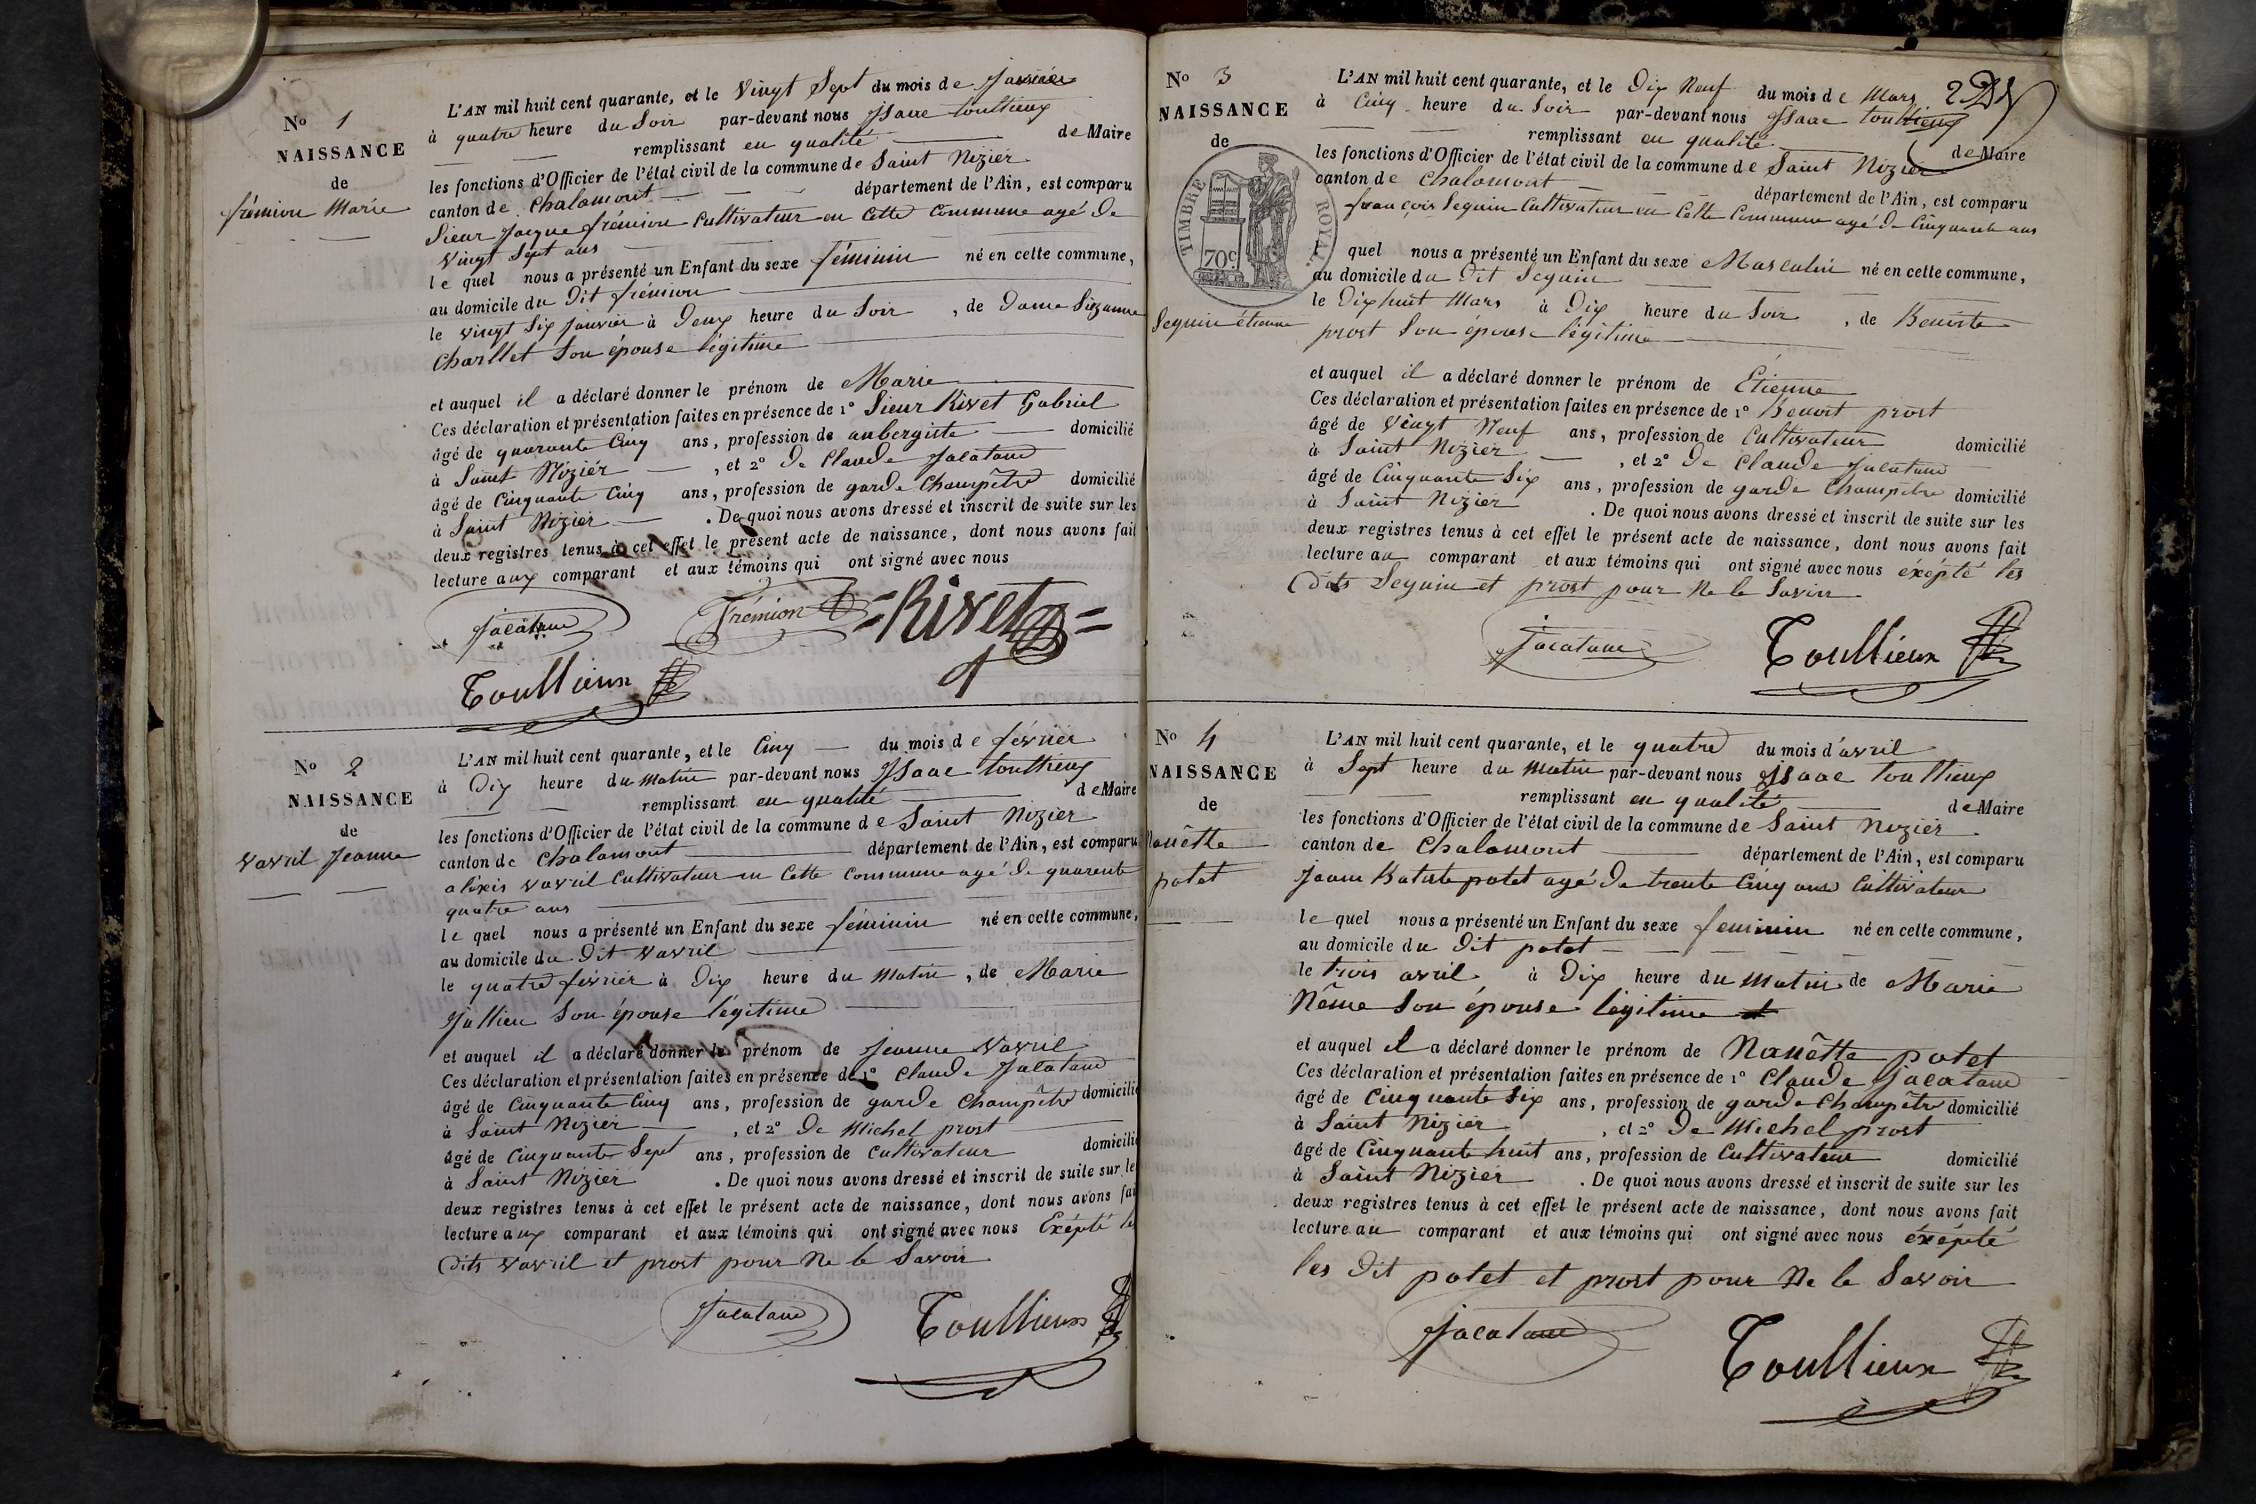 N° 1
NAISSANCE
de
frémion Marie
L'AN mil huit cent quarante, et le vingt Sept du mois de Janvier
à quatre heure du Soir par-devant nous Isaac toullieux
remplissant en qualité de Maire
les fonctions d'Officier de l'état civil de la commune de Saint Nizier
canton de Chalamont département de l'Ain, est comparu
Sieur Jacque frémion Cultivateur en Cette Commune agé de
vingt Sept ans
le quel nous a présenté un Enfant du sexe féminin né en cette commune,
au domicile du dit frémion
le vingt Six Janvier à deux heure du Soir, de dame Suzanne
Charllet Son épouse légitime
et auquel il a déclaré donner le prénom de Marie
Ces déclaration et présentation faites en présence de 1° Sieur Rivet Gabriel
âgé de quarante Cinq ans, profession de aubergiste domicilié
à Saint Nizier, et 2° de Claude Jacatane
âgé de Cinquante Cinq ans, profession de garde Champêtre domicilié
à Saint Nizier. De quoi nous avons dressé et inscrit de suite sur les
deux registres tenus à cet effet le présent acte de naissance, dont nous avons fait
lecture aux comparant et aux témoins qui ont signé avec nous
Jacatane Frémion =Rivet=
Toullieux
N° 2
NAISSANCE
de
vavril Jeanne
L'AN mil huit cent quarante, et le Cinq du mois de février
à Dix heure du matin par-devant nous Isaac toullieux
remplissant en qualité de Maire
les fonctions d'Officier de l'état civil de la commune de Saint Nizier
canton de Chalamont département de l'Ain, est comparu
aléxis vavril Cultivateur en Cette Commune agé de quarente
quatre ans
le quel nous a présenté un Enfant du sexe féminin né en cette commune,
au domicile du dit vavril
le quatre février à Dix heure du matin, de Marie
Jullien Son épouse légitime
et auquel il a déclaré donner le prénom de Jeanne vavril
Ces déclaration et présentation faites en présence de 1° Claude Jacatane
âgé de Cinquante Cinq ans, profession de garde Champêtre domicilié
à Saint Nizier, et 2° de Michel prost
âgé de Cinquante Sept ans, profession de Cultivateur domicilié
à Saint Nizier. De quoi nous avons dressé et inscrit de suite sur le
deux registres tenus à cet effet le présent acte de naissance, dont nous avons fai
lecture aux comparant et aux témoins qui ont signé avec nous Exépté les
dits vavril et prost pour Ne le Savoir
Jacatane Toullieux
N° 3
NAISSANCE
de
TIMBRE ROYAL
70c
Seguin étienne
L'AN mil huit cent quarante, et le Dix Neuf du mois de Mars
à Cinq heure du Soir par-devant nous Isaac toullieux
remplissant en qualité de Maire
les fonctions d'Officier de l'état civil de la commune de Saint Nizier
canton de Chalamont département de l'Ain, est comparu
françois Seguin Cultivateur en Cette Commune agé de Cinquante ans
quel nous a présenté un Enfant du sexe Masculin né en cette commune,
au domicile du dit Seguin
le Dix huit Mars à Dix heure du Soir, de Benoite
prost Son épouse légitime
et auquel il a déclaré donner le prénom de Étienne
Ces déclaration et présentation faites en présence de 1° Benoit prost
âgé de vingt Neuf ans, profession de Cultivateur domicilié
à Saint Nizier, et 2° de Claude Jacatane
âgé de Cinquante Six ans, profession de garde Champêtre domicilié
à Saint Nizier. De quoi nous avons dressé et inscrit de suite sur les
deux registres tenus à cet effet le présent acte de naissance, dont nous avons fait
lecture au comparant et aux témoins qui ont signé avec nous éxépté les
dits Seguin et prost pour Ne le Savoir
Jacatane Toullieux
N° 4
NAISSANCE
de
Nanêtte
potet
L'AN mil huit cent quarante, et le quatre du mois d'avril
à Sept heure du matin par-devant nous Isaac toullieux
remplissant en qualité de Maire
les fonctions d'Officier de l'état civil de la commune de Saint Nizier
canton de Chalamont département de l'Ain, est comparu
Jean Batiste potet agé de trente Cinq ans Cultivateur
le quel nous a présenté un Enfant du sexe feminin né en cette commune,
au domicile du dit potet
le trois avril à Dix heure du matin de Marie
Nême Son épouse légitime
et auquel il a déclaré donner le prénom de Nanêtte potet
Ces déclaration et présentation faites en présence de 1° Claude Jacatane
âgé de Cinquante Six ans, profession de garde Champêtre domicilié
à Saint Nizier, et 2° de Michel prost
âgé de Cinquante huit ans, profession de Cultivateur domicilié
à Saint Nizier. De quoi nous avons dressé et inscrit de suite sur les
deux registres tenus à cet effet le présent acte de naissance, dont nous avons fait
lecture au comparant et aux témoins qui ont signé avec nous éxépté
les dit potet et prost pour Ne le Savoir
Jacatane Toullieux